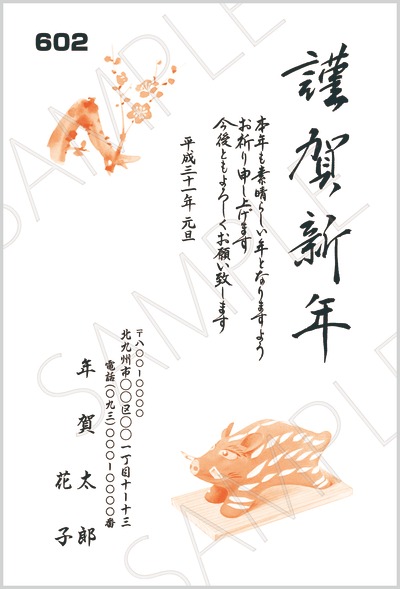 602
謹賀新年
本年も素晴らしい年となりますよう
お祈り申し上げます
今後ともよろしくお願い致します
平成三十一年 元旦
〒八〇〇-〇〇〇〇
北九州市〇〇区〇〇一丁目十-十三
電話(〇九三)〇〇〇-〇〇〇〇番
年賀太郎
花子
SAMPLE
SAMPLE
SAMPLE
SAMPLE